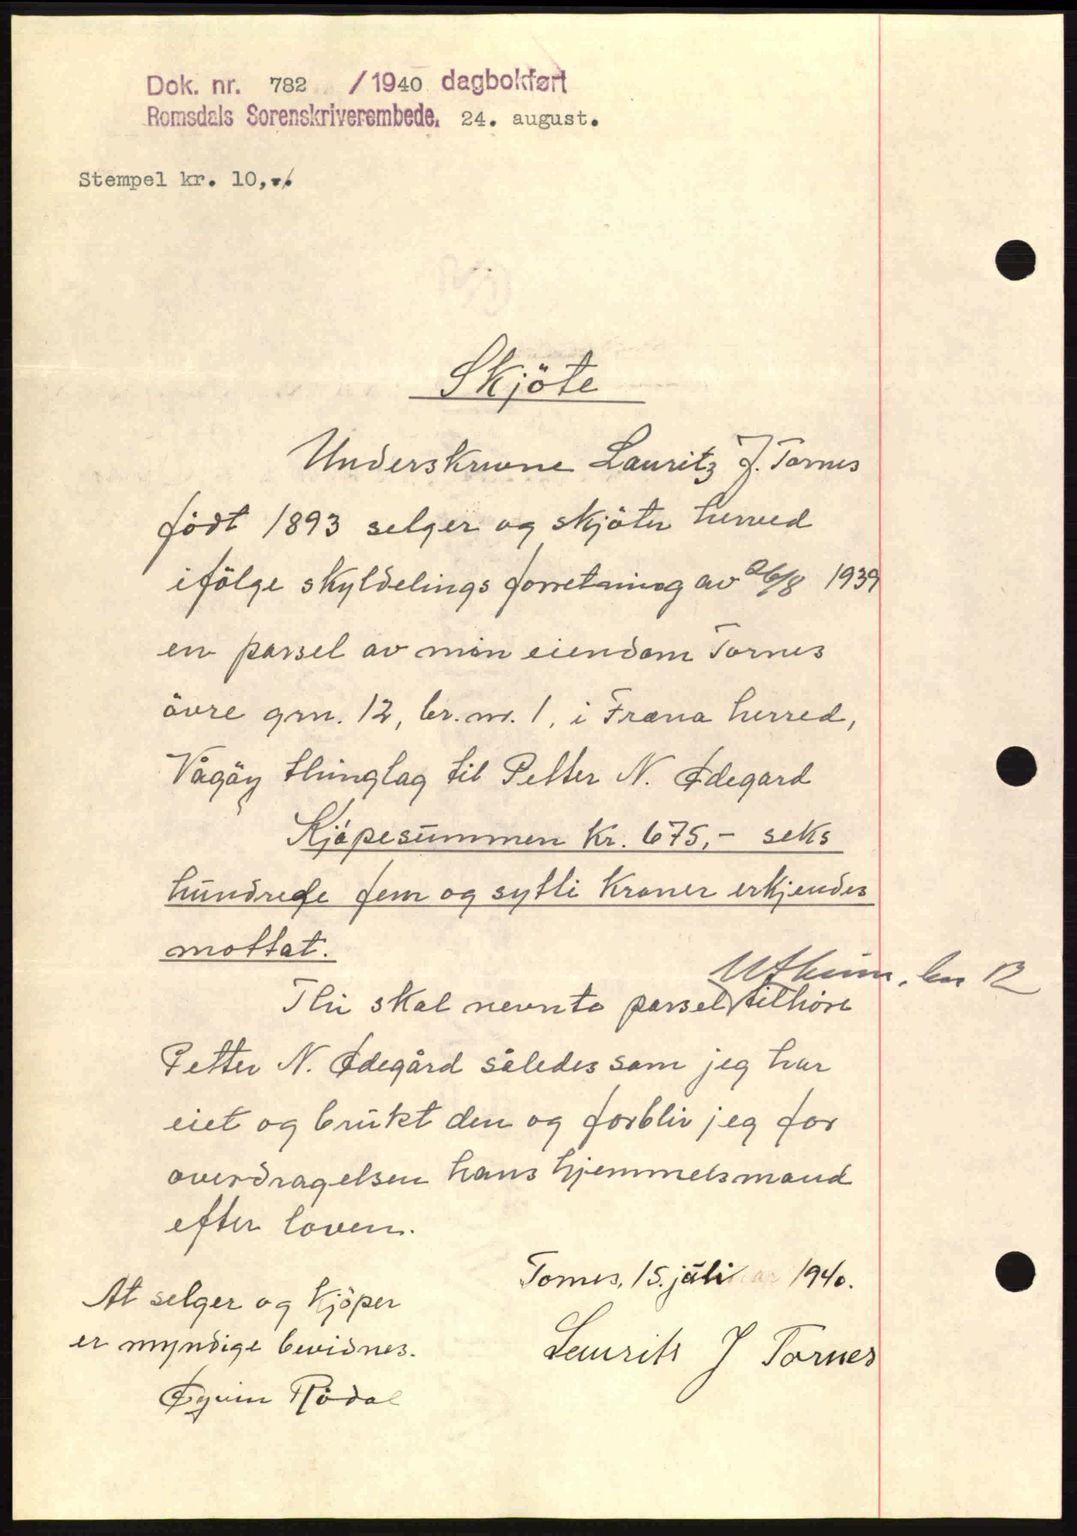 Dok. nr. 782 /1940 dagbokført
Romsdals Sorenskriverembede. 24. august.
Stempel kr. 10,-.
Skjöte
Underskrivne Lauritz J. Tornes
födt 1893 selger og skjöter herved
ifölge skyldelings forretning av 26/8 1939
en parsel av min eiendom Tornes
övre grn. 12, br. nr. 1, i Fræna herred,
Vågöy thinglag til Petter N. Ødegard
Kjöpesummen kr. 675,- seks
hundrede fem og sytti kroner erkjendes
mottat.
br 12
Thi skal nevnte parsel tilhöre
Petter N. Ødegård således som jeg har
eiet og brukt den og forblir jeg for
overdragelsen hans hjemmelsmand
efter loven.
Tornes, 15. juli 1940.
At selger og kjöper
er myndige bevidnes.
Lauritz J Tornes
Rödal